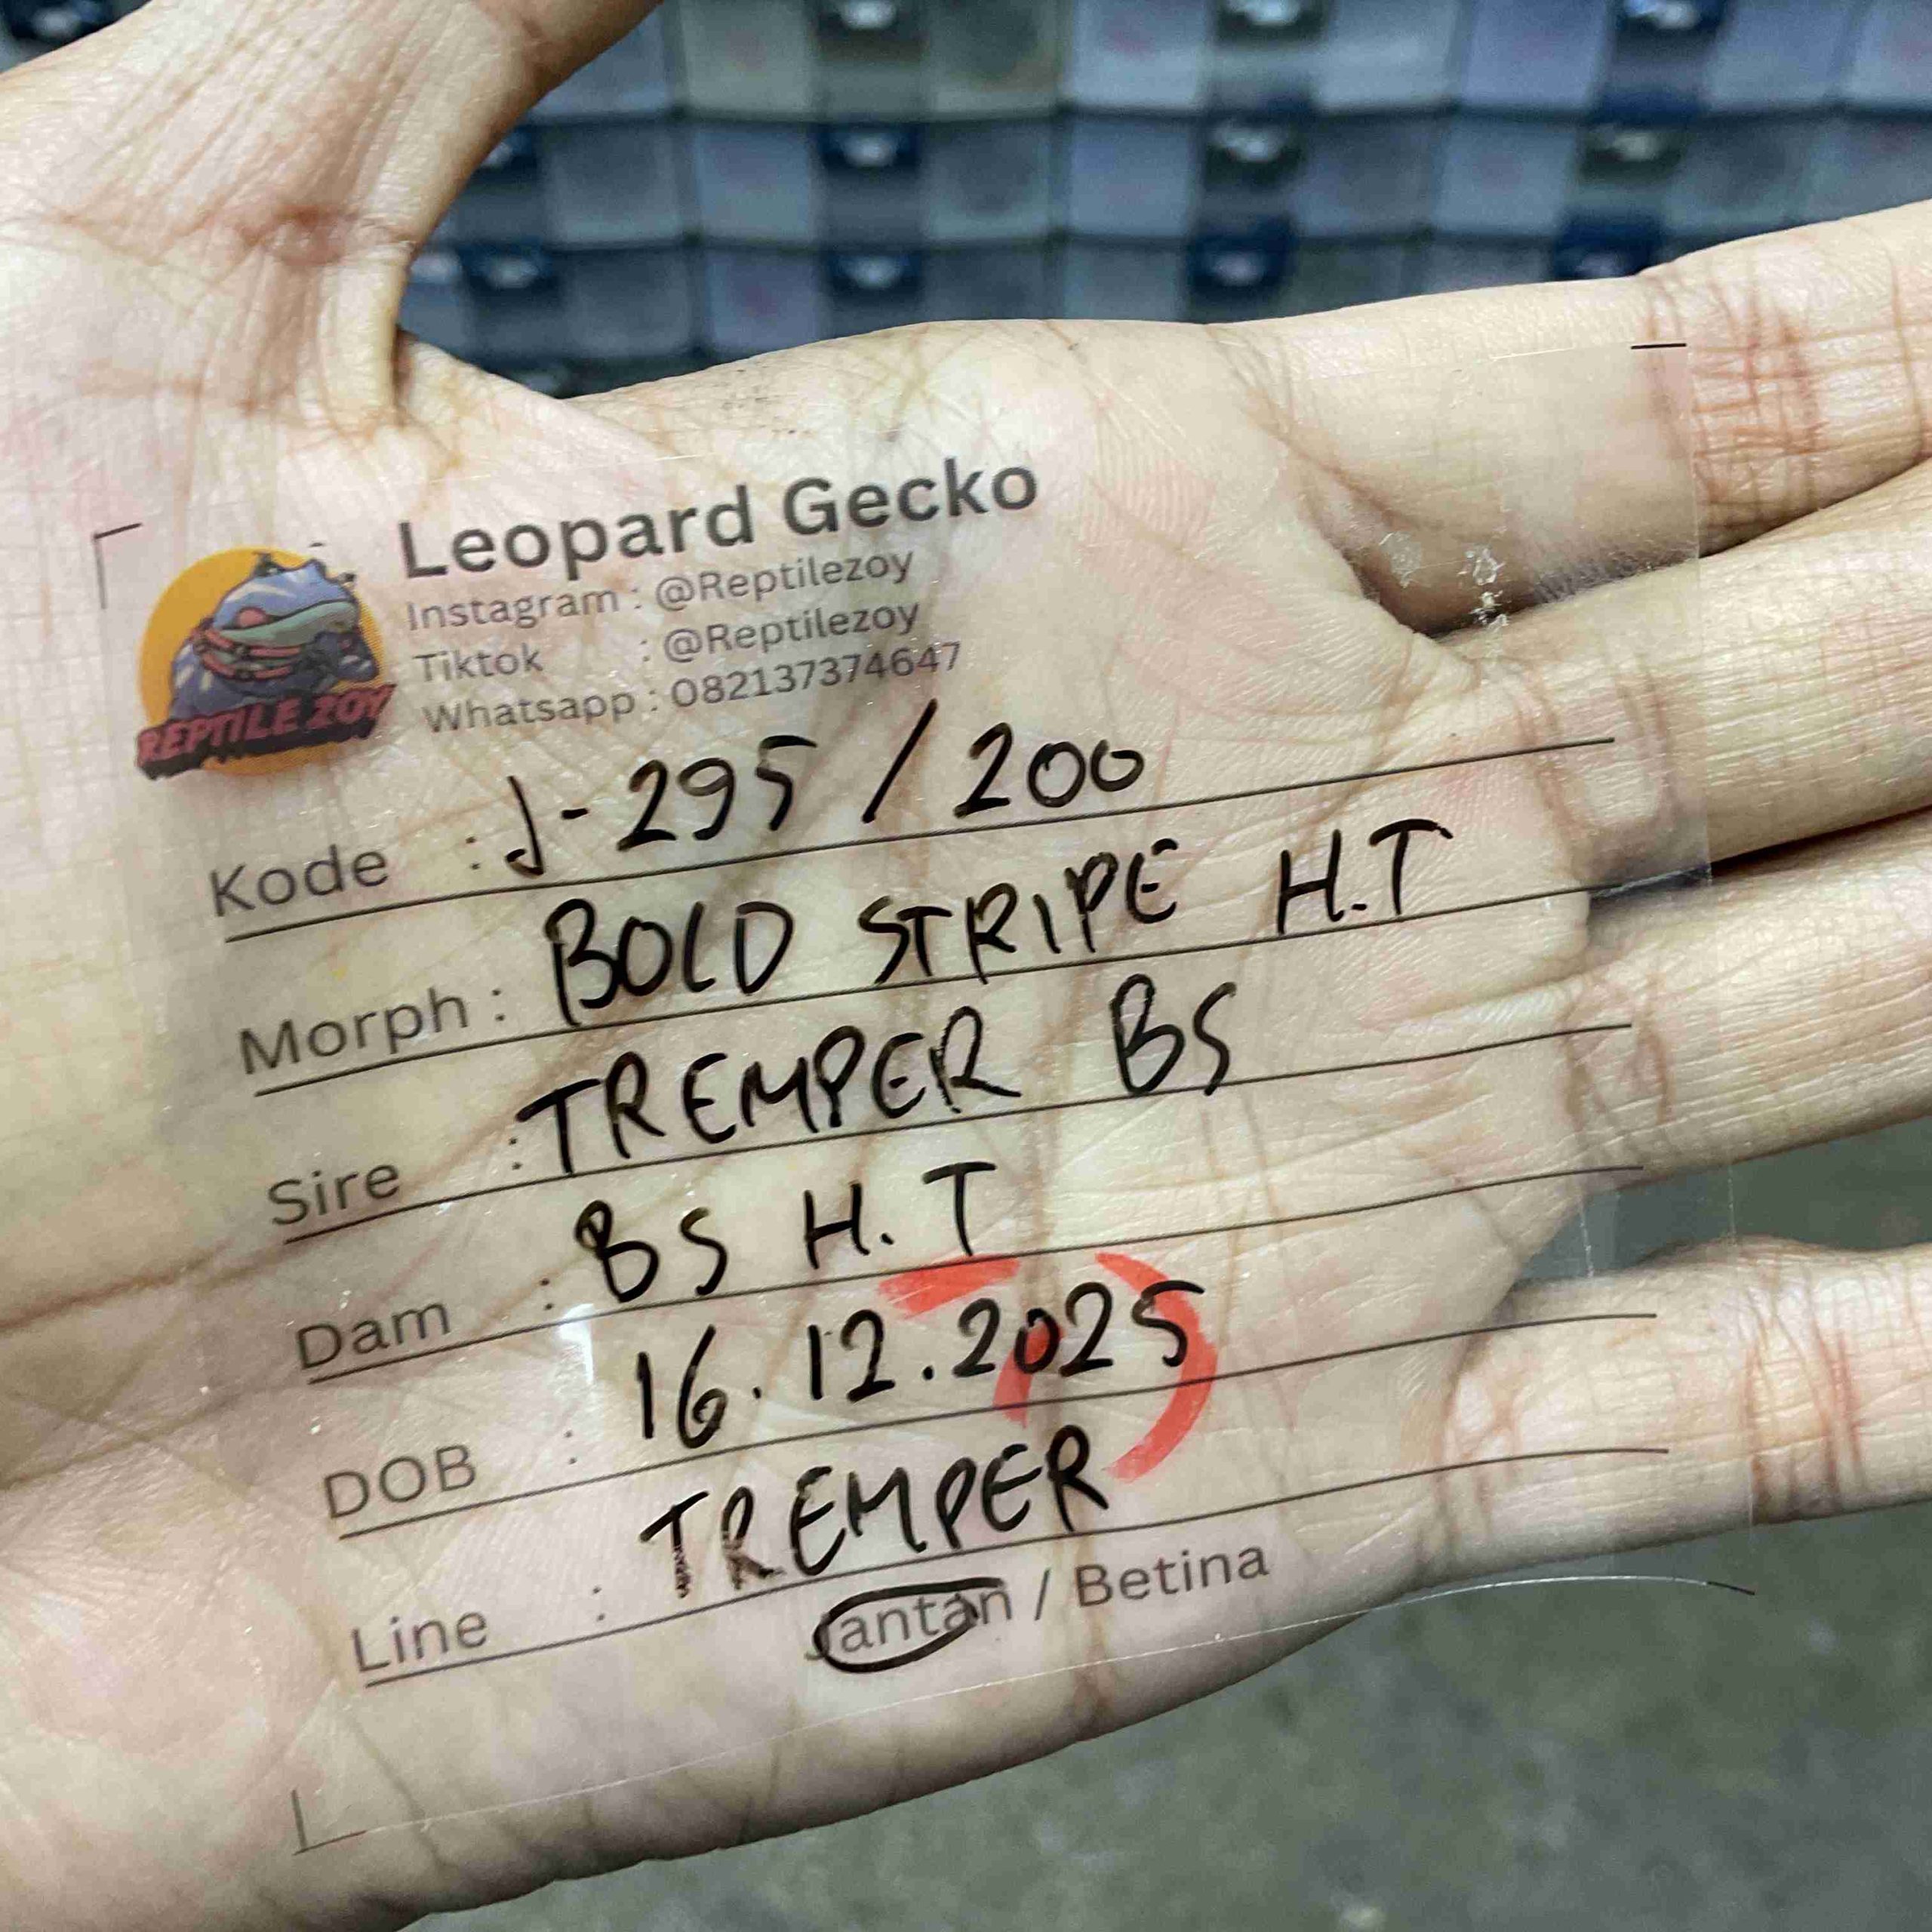 Leopard Gecko
Instagram : @Reptilezoy
Tiktok : @Reptilezoy
Whatsapp : 082137374647
REPTILE ZOY
Kode : J-295 / 200
Morph : BOLD STRIPE H.T
Sire : TREMPER BS
Dam : BS H.T
DOB : 16.12.2025
Line : TREMPER
Jantan / Betina